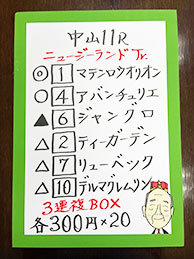 中山11R
ニュージーランドTr.
◎ 1 マテンロウオリオン
○ 4 アバンチュリエ
▲ 6 ジャングロ
△ 2 ティーガーデン
△ 7 リューベック
△ 10 デルマグレムリン
3連複BOX
各300円×20